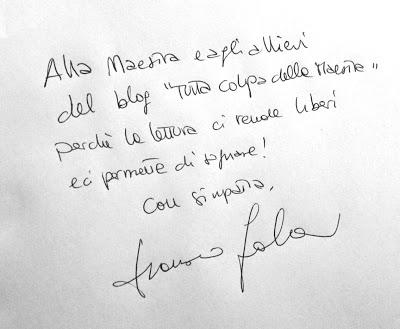 Alla Maestra e agli allievi
del blog "Tutta colpa della Maestra"
perchè la lettura ci rende liberi
e ci permette di sognare!
Con simpatia,